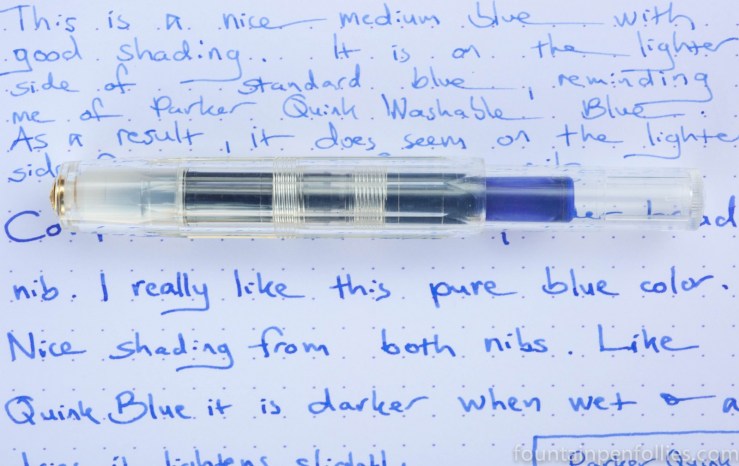 This is a nice medium blue with
good shading... It is on the lighter
side of standard blue, reminding
me of Parker Quink Washable Blue.
As a result, it does seem on the lighte
sid
Co
nib. I really like this pure blue color.
Nice shading from both nibs. Like
Quink Blue it is darker when wet a
it lightens slightly.
Parker Quink
fountainpenfollies.com